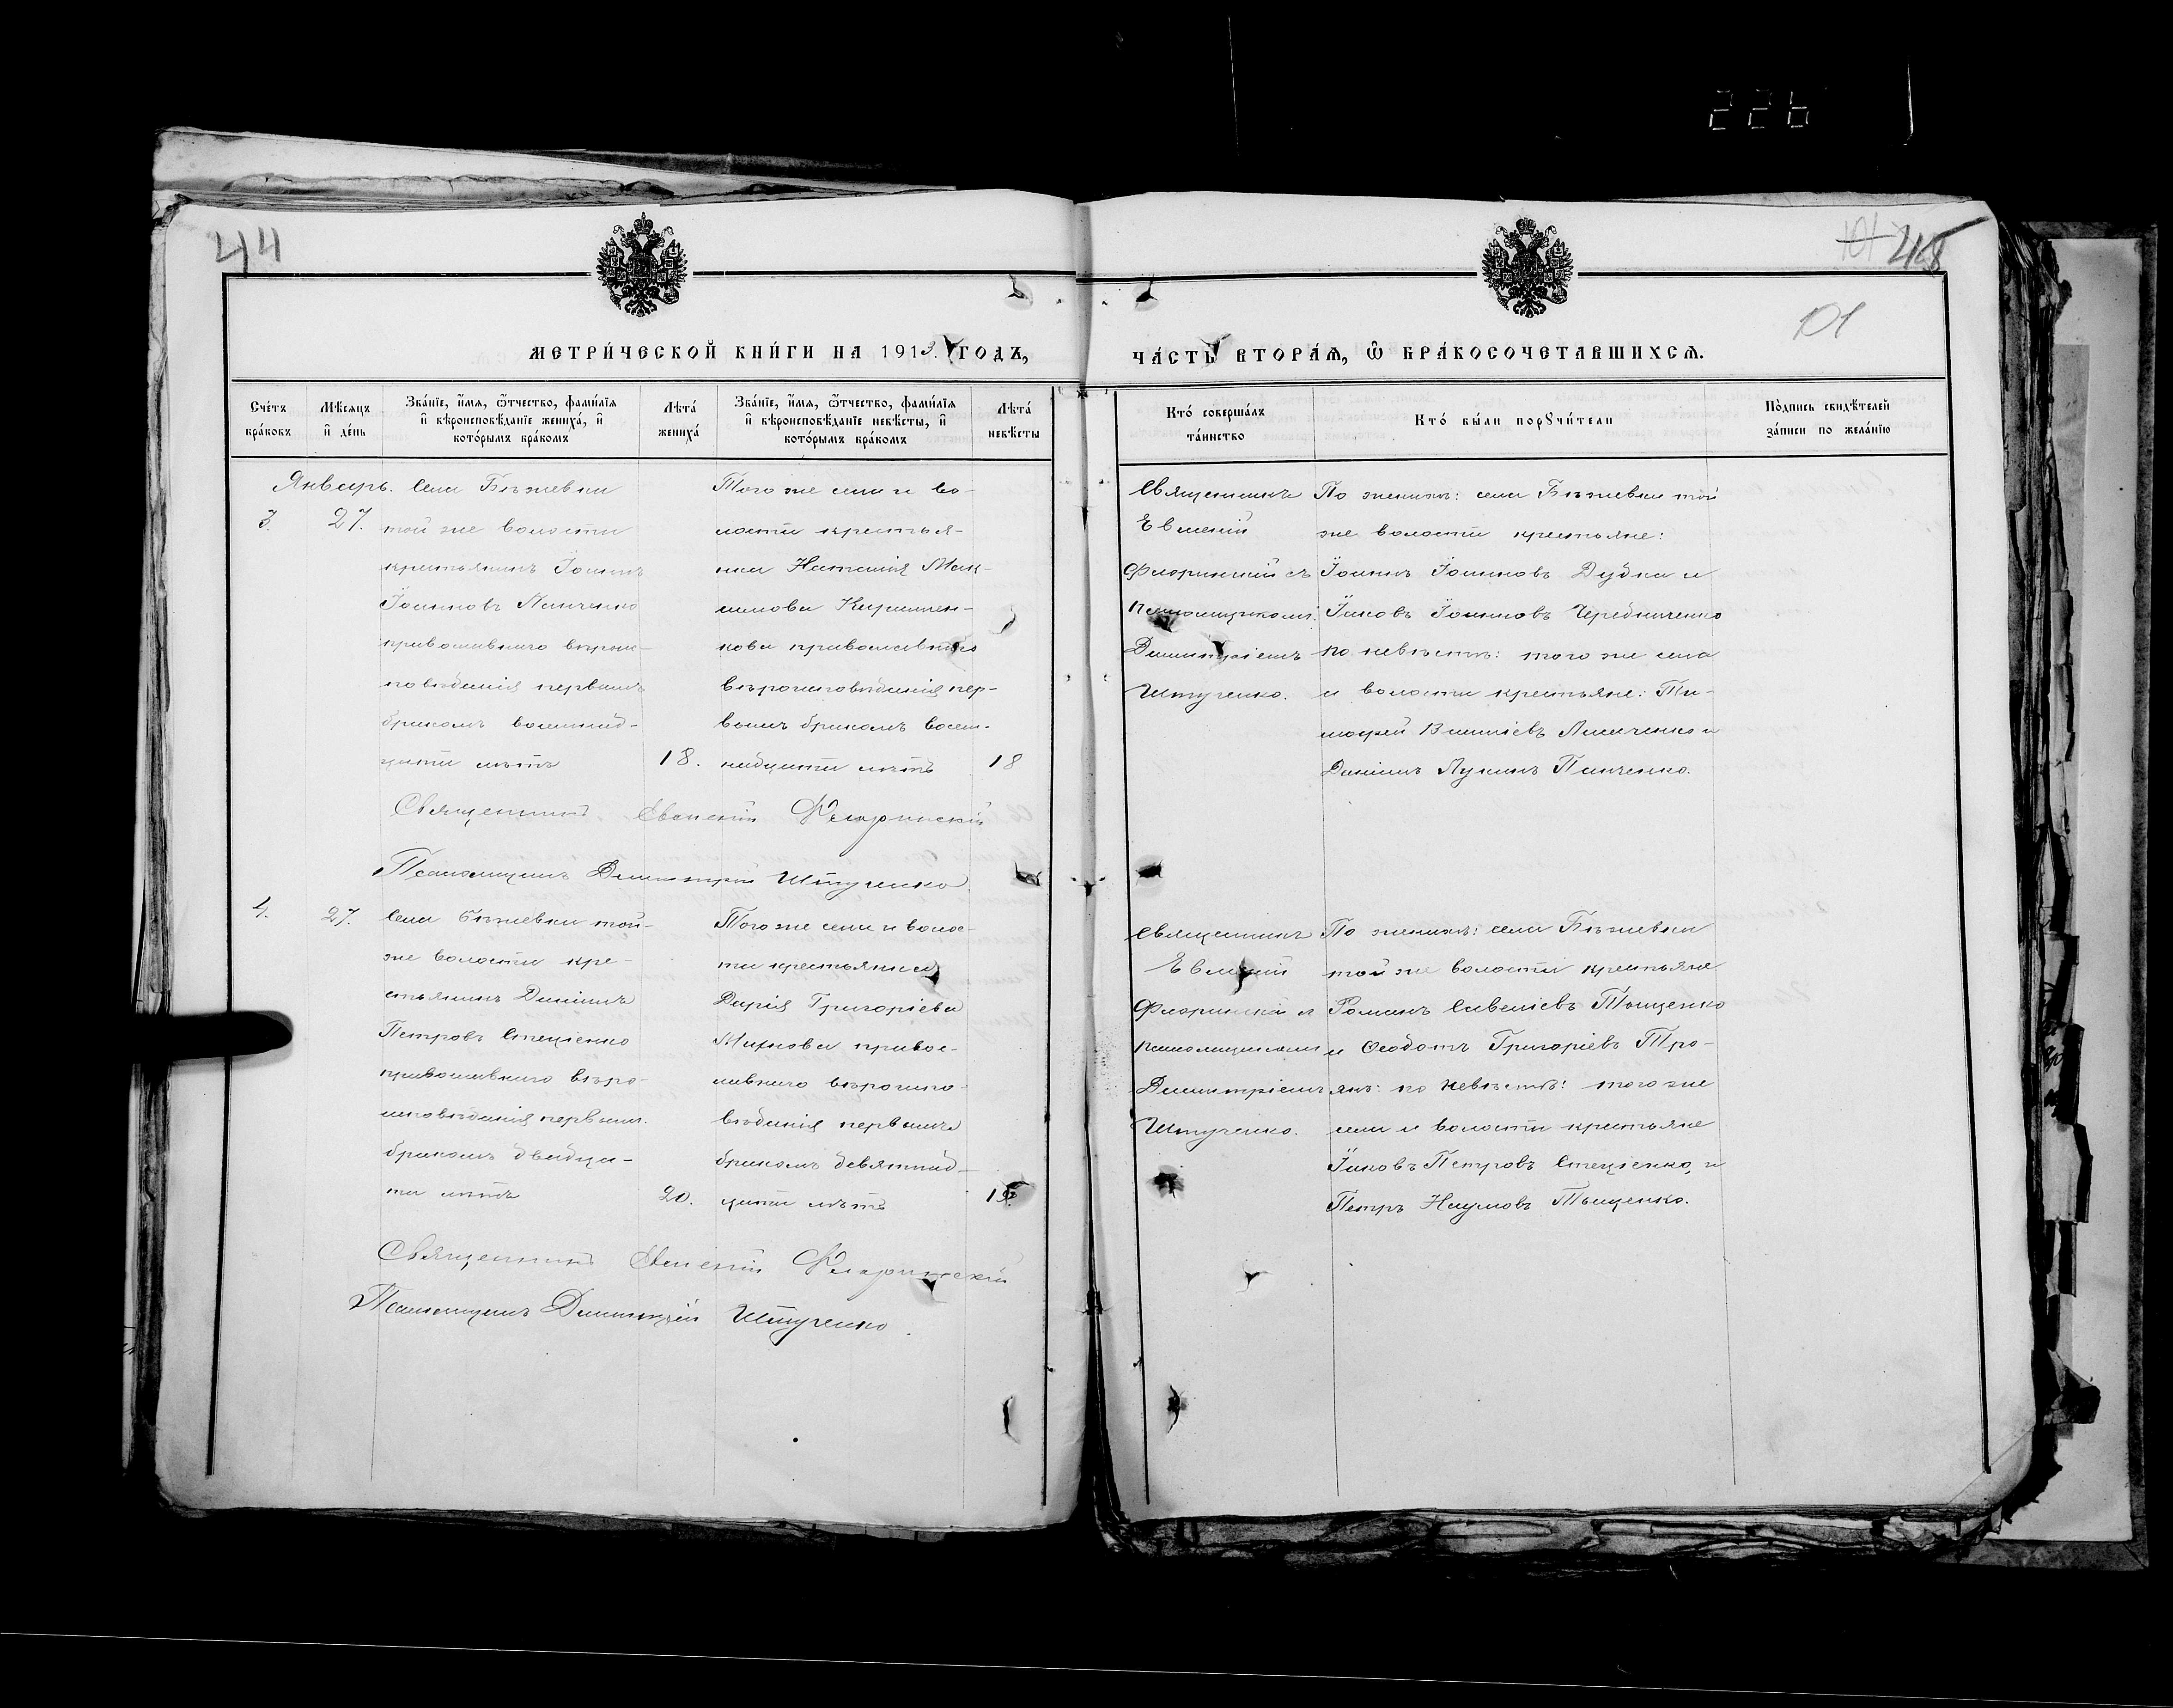 226
44
101 45
101
МЕТРИ́ЧЕСКОЙ КНИ́ГИ НА 1913. ГОДЪ,
ЧА́СТЬ ВТОРА́Ѧ, Ѿ БРА́КОСОЧЕТАВШИХСѦ.
Сче́тъ бра́ковъ
Мѣ́сяцъ и҆ де́нь
Зва́нїе, и҆́мѧ, ѻ҆́тчество, фами́лїѧ
и҆ вѣроисповѣ́данїе жениха́, и҆
кото́рымъ бра́комъ
Лѣ́та
жениха́
Зва́нїе, и҆́мѧ, ѻ҆́тчество, фами́лїѧ
и҆ вѣроисповѣ́данїе невѣ́сты, и҆
кото́рымъ бра́комъ
Лѣ́та
невѣ́сты
Кто́ соверша́лъ
та́инство
Кто́ бы́ли порꙋчи́тели
По́дпись свидѣ́телей
за́писи по жела́нїю
Январь.
3.
27.
Села Бѣжевки
той же волости
крестьянинъ Іоаннъ
Іоанновъ Панченко
православнаго вѣроис-
повѣданія первымъ
бракомъ восемнад-
цати лѣтъ
18.
Того же села и во-
лости крестья-
нка Наталія Мак-
симова
кова православнаго
вѣроисповѣданія пер-
вымъ бракомъ восем-
надцати лѣтъ
18
Священникъ
Евмений
Флоринский съ
псаломщикомъ
Димитріемъ
Штученко.
По женихѣ: села Бѣжевки той
же волости крестьяне:
Іоаннъ Іоанновъ Дудка и
Іаковъ Іоанновъ Чередниченко
по невѣстѣ: того же села
и волости крестьяне: Ти-
мофей
Даніилъ Лукинъ Панченко.
Священникъ Евмений Флоринский
Псаломщикъ Димитрій Штученко.
4.
27.
Села Бѣжевки той-
же волости кре-
стьянинъ Даніилъ
Петровъ Стеценко
православнаго вѣро-
исповѣданія первымъ
бракомъ двадца-
ти лѣтъ
20.
Того же села и волос-
ти крестьянка
Дарія Григоріева
Михнова правос-
лавнаго вѣроиспо-
вѣданія первымъ
бракомъ девятнад-
цати лѣтъ
19.
Священникъ
Евмений
Флоринский и
псаломщикомъ
Димитріемъ
Штученко.
По женихѣ: села Бѣжевки
той же волости крестьяне
Романъ Савеліевъ Тыщенко
и Ѳеодотъ Григоріевъ Тро-
янъ: по невѣстѣ: того же
села и волости крестьяне
Іаковъ Петровъ Стеценко, и
Петръ Наумовъ Тыщенко.
Священникъ Евмений Флоринский
Псаломщикъ Димитрій Штученко.